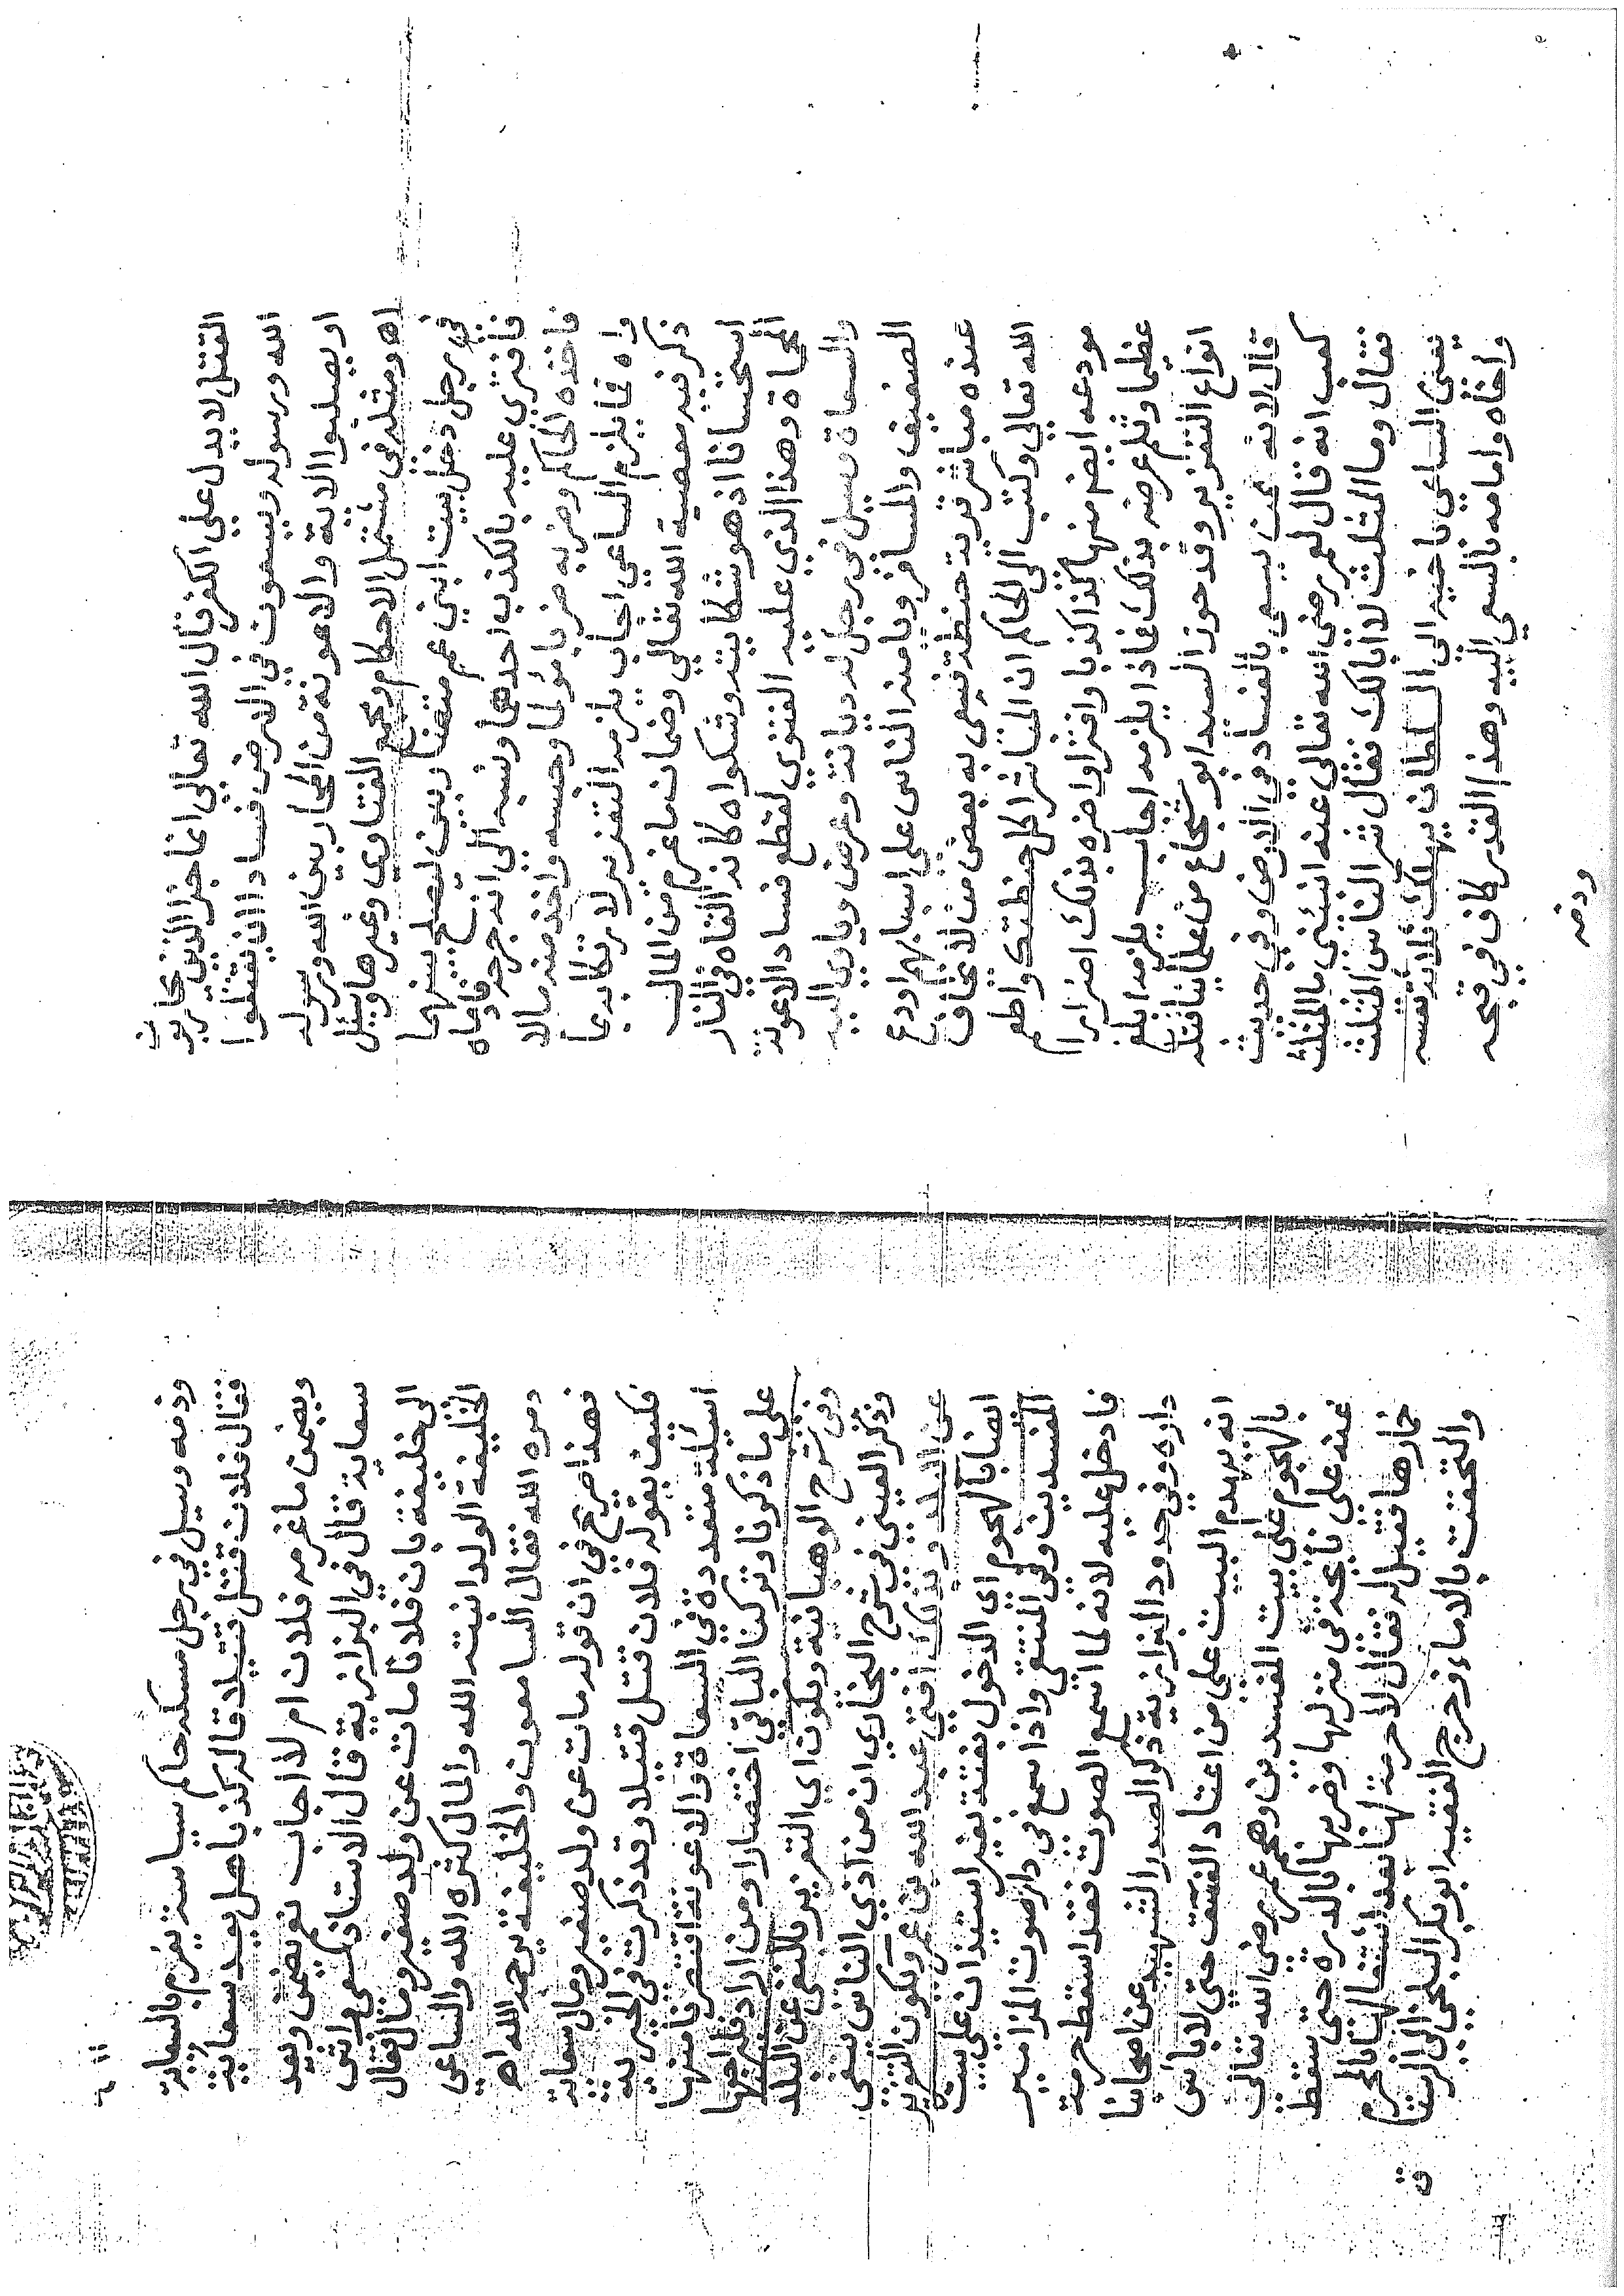 القتل لايدل علي الكفر قال الله تعالي انما جزا الذين يحاربون
الله ورسوله ويسعون في الارض فسادا ان يقتلوا
او يصلبوا الاية والاعونة من المحاربين الله ورسوله
اه ومثله في مشتمل الاحكام ومجمع الفتاوي وغيرها وسيل
في رجل دخل بيت ابني عم متضاربين ليصلح بينهما
فافتري عليه بالكذب احدهما ونسبه الي انه جرحه فادماه
فاخذه الحاكم وضربه ضربا مولما وحبسه واخذ منه مالا
واه فما يلزم الساعي اجاب يلزمه التعزير لارتكابه ما
ذكر فيه معصية الله تعالي وضمان ما غرم من المال
استحسانا اذ هو شكايته وشكواه كانه القاه في النار
المحاة وهذا الذي عليه الفتوي لقطع فساد الاعونة
والسعاة وسيل في رجل له ديانة وعرض وياوي اليه
الضعيف والمسافر ويامنه الناس علي اسبابهم اودع
عنده مباشر قرية حنطة فسعي به بعض من لا يخاف
الله تعالي وكتب الي الحاكم ان المباشر اكل حنطتك واطعم
مودعه ايضا منها كذا كذبا وافتراوا ضره بذلك اضرارا
عظيما وثلم عرضه بذلك فماذا يلزمه اجاب يلزمه ابلغ
انواع التعزير وقد جوز السيد ابو شجاع من علمائنا قتله
قال لانه ممن يسعي بالفساد في الارض وفي حديث
كعب انه قال لعمر رضي الله تعالي عنه انبئني ما المثلث
فقال وما المثلث لا ابالك فقال شر الناس المثلث
يعني الساعي باخيه الي السلطان يهلك ثلاثة نفسه
واخاه وامامه بالسعي اليه وهذا القدر كاف في قبحه
وذمه
وذمه وسيل في رجل مسكه حاكم سياسة يغرم بالسعاية
فقال فلان قتل قتيلا قاله كذبا هل يعد سعاية
ويضمن ما غرمه فلان ام لا اجاب نعم يضمن ويعد
سعاية قال في البزازية قال الاستاذ سعي واش
الي خليفة بان فلانا مات عن ولد صغير ومال فقال
الخليفة الولد انبته الله والمال كثره الله والساعي
دمره الله فقال السامعون والخليفة يرحمه الله اه
فهذا صريح في ان قوله مات عن ولد صغير ومال سعاية
فكيف بقوله فلان قتل قتيلا وقد ذكرت في الخيرية
اسئلة متعددة في السعاة والاعونة اقتصرنا منها
علي ما ذكرنا وتركنا الباقي اختصارا ومن اراد فليراجعها
وفي شرح الوهبانية ويكون اي التعزير بالنفي عن البلد
وذكر العيني في شرح البخاري ان من اذي الناس ينفي
عن البلد وبذلك افتي عبد الله بن عمر ويكون التعزير
ايضا بالهجوم اي الدخول بغتة بغير استيذان علي بيت
المفسدين وفي المنتقي واذا سمع في دار صوت المزامير
فادخل عليه لانه لما اسمع الصوت فقد اسقط حرمة
داره وفي حدود البزازية ذكر الصدر الشهيد عن اصحابنا
انه يهدم البيت علي من اعتاد الفسق حتي لا باس
بالهجوم علي بيت المفسدين وهجم عمر رضي الله تعالي
عنه علي نايحة في منزلها وضربها بالدرة حتي سقط
خمارها فقيل له فقال لا حرمة لها بعد اشتغالها بالمحرم
والتحقت بالاماء وخرج الفقيه ابو بكر البلخي الي الرستاق